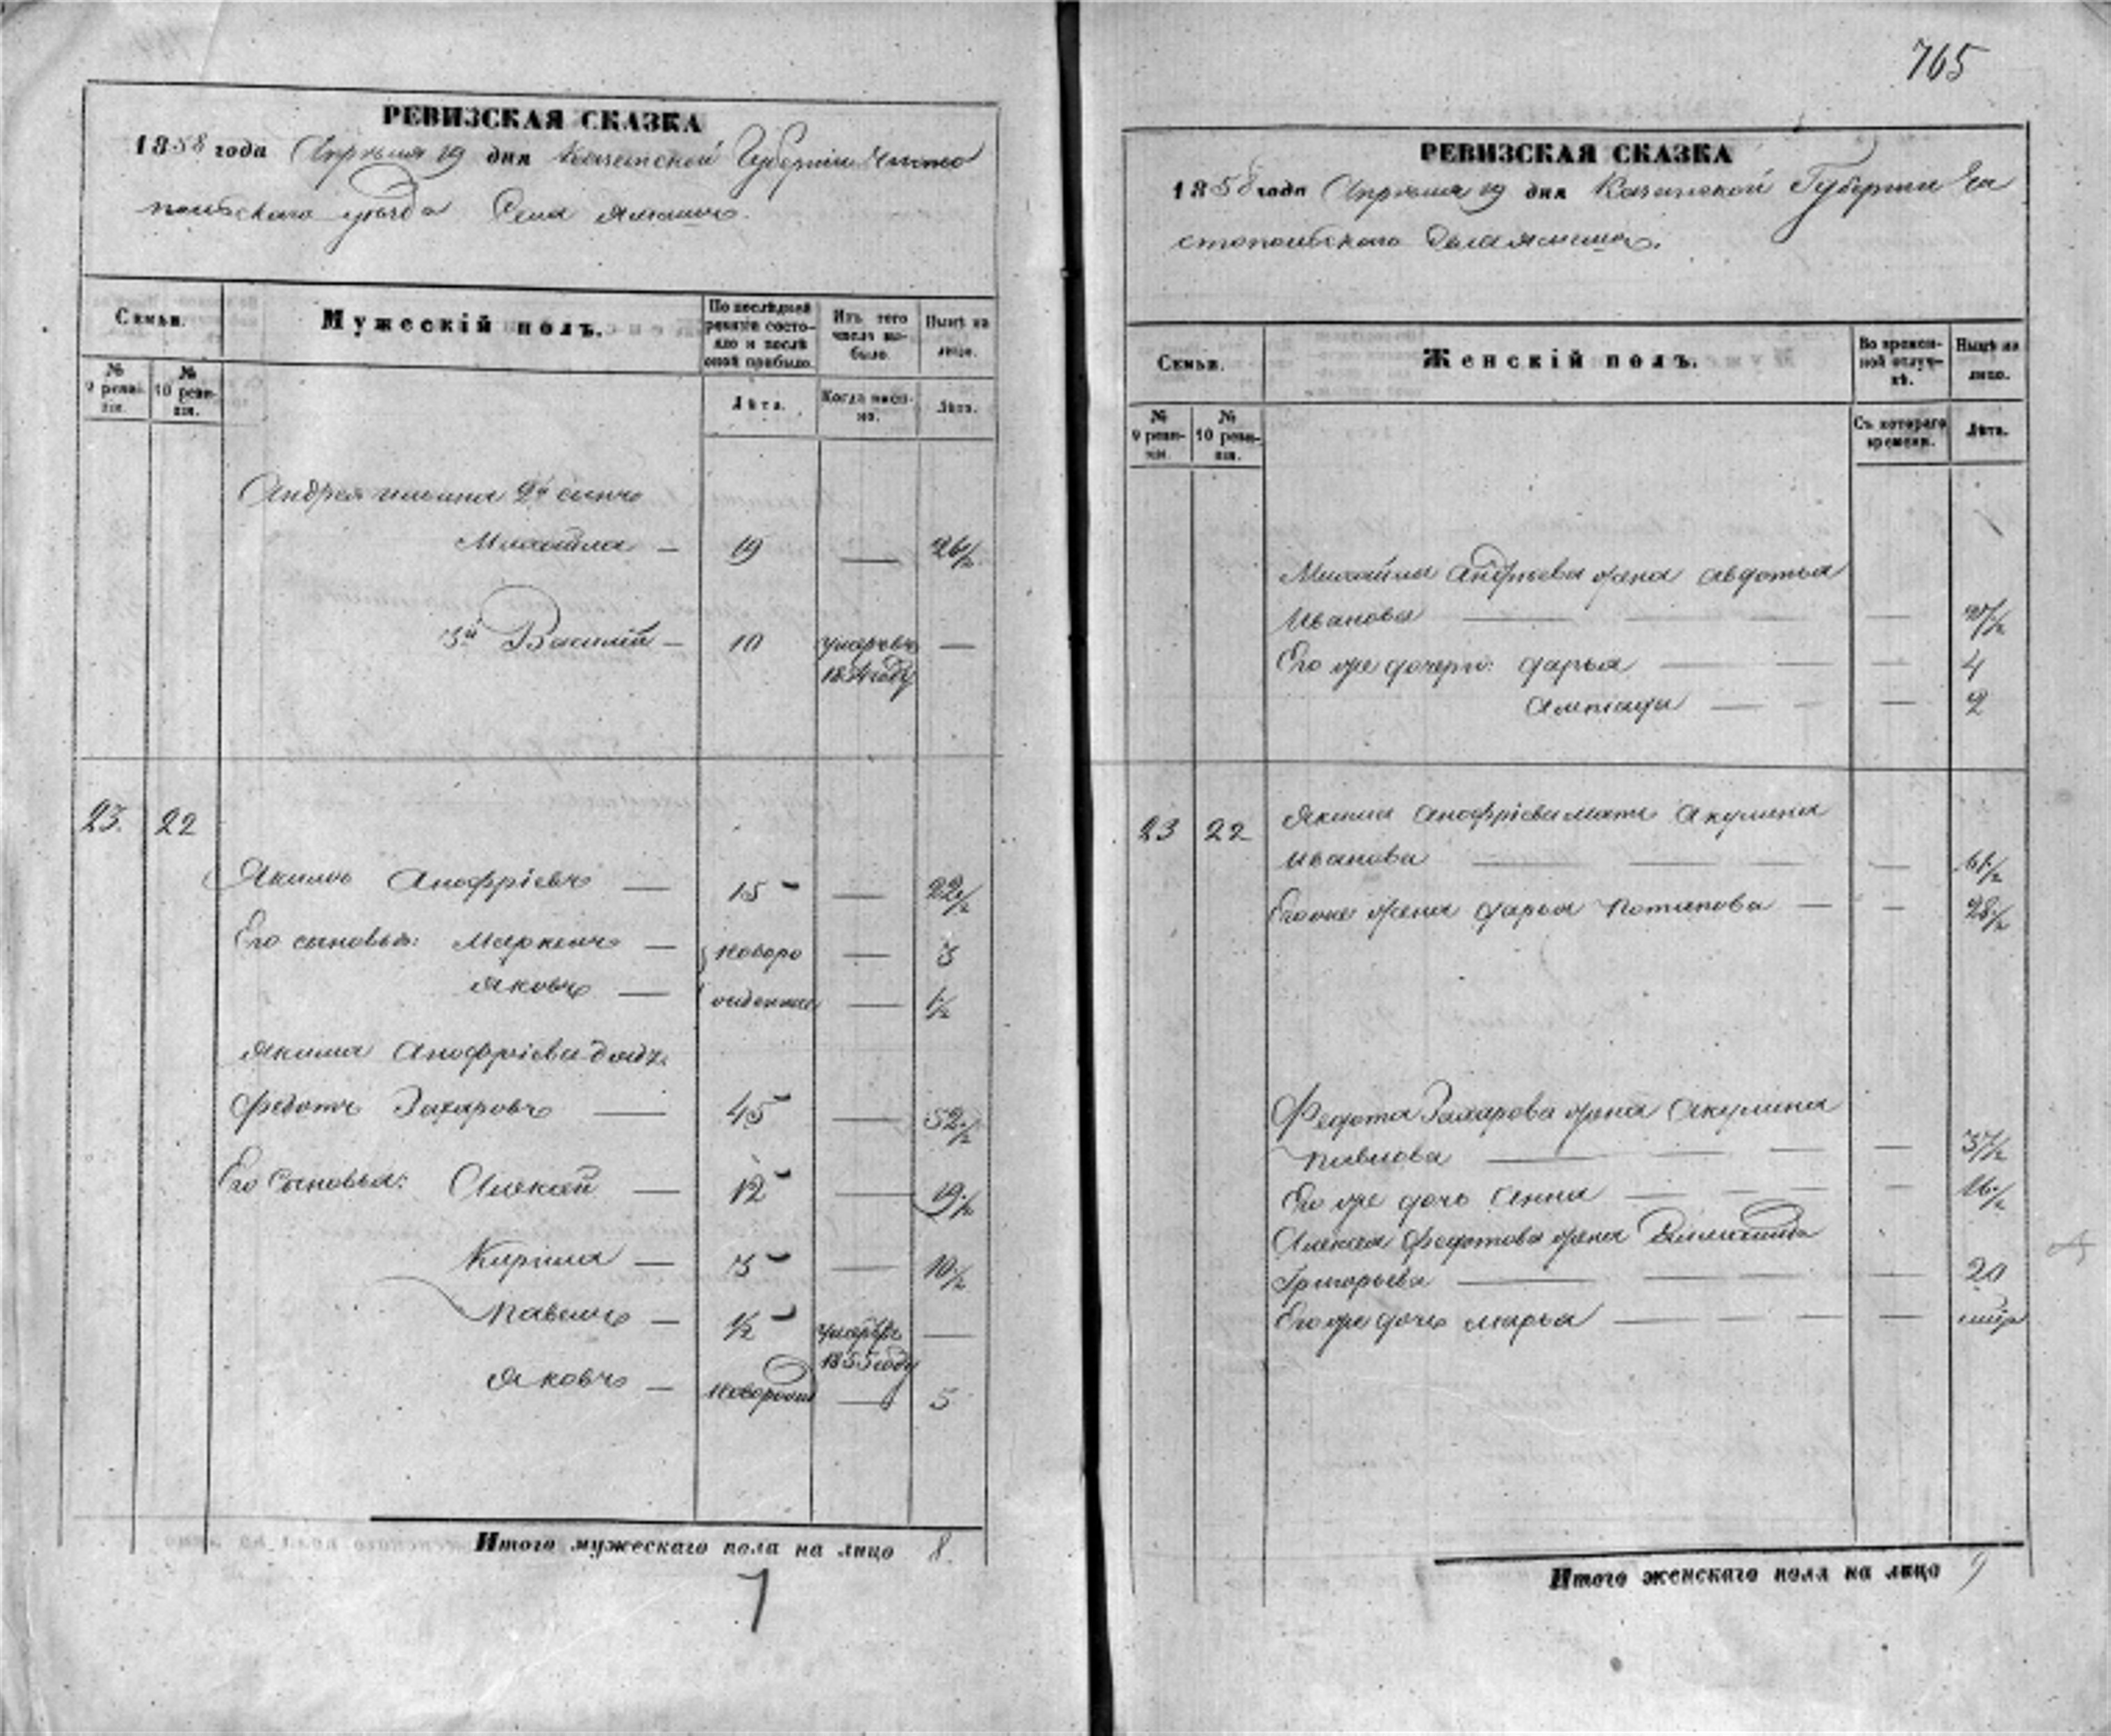 765
РЕВИЗСКАЯ СКАЗКА
1858 года Апрѣля 19 дня Казанской Губерніи Чисто
польскаго уѣзда Села
Семьи.
Мужескій полъ.
По послѣдней ревизіи состояло и послѣ оной прибыло.
Изъ того числа выбыло.
Нынѣ на лицо.
№ 9 ревизіи.
№ 10 ревизіи.
Лѣта.
Когда именно.
Лѣта.
Андрея 2й сынъ
Михайла — 19 — 26½
3й Василій — 10 умеръ —
1854 году
23. 22
Якимъ Анофріевъ — 15 — 22½
Его сыновья: Маркелъ — новоро — 3
Яковъ — жденные — 1½
Якима Анофріева дядя
Федотъ Захаровъ — 45 — 52½
Его сыновья: Алексѣй — 12 — 19½
Кирила — 3 — 10½
Павелъ — ½ умеръ —
1855 году
Яковъ — новорожд — 5
Итого мужескаго пола на лицо 8.
7
РЕВИЗСКАЯ СКАЗКА
1858 года Апрѣля 19 дня Казанской Губерніи Чи
стопольскаго Села
Семьи.
Женскій полъ.
Во временной отлучкѣ.
Нынѣ на лицо.
№ 9 ревизіи.
№ 10 ревизіи.
Съ котораго времени.
Лѣта.
Михайла Андрѣева жена Авдотья
Иванова — — 27½
Его же дочери: Дарья — — 4
— — 2
23 22 Якима Анофріева мать Акулина
Иванова — — 61½
Его же жена Дарья Потапова — — 28½
Федота Захарова жена Акулина
Павлова — — 37½
Его же дочь Анна — — 16½
Алексѣя Федотова жена
Григорьева — — 20
Его же дочь Марья — —
Итого женскаго пола на лицо 9